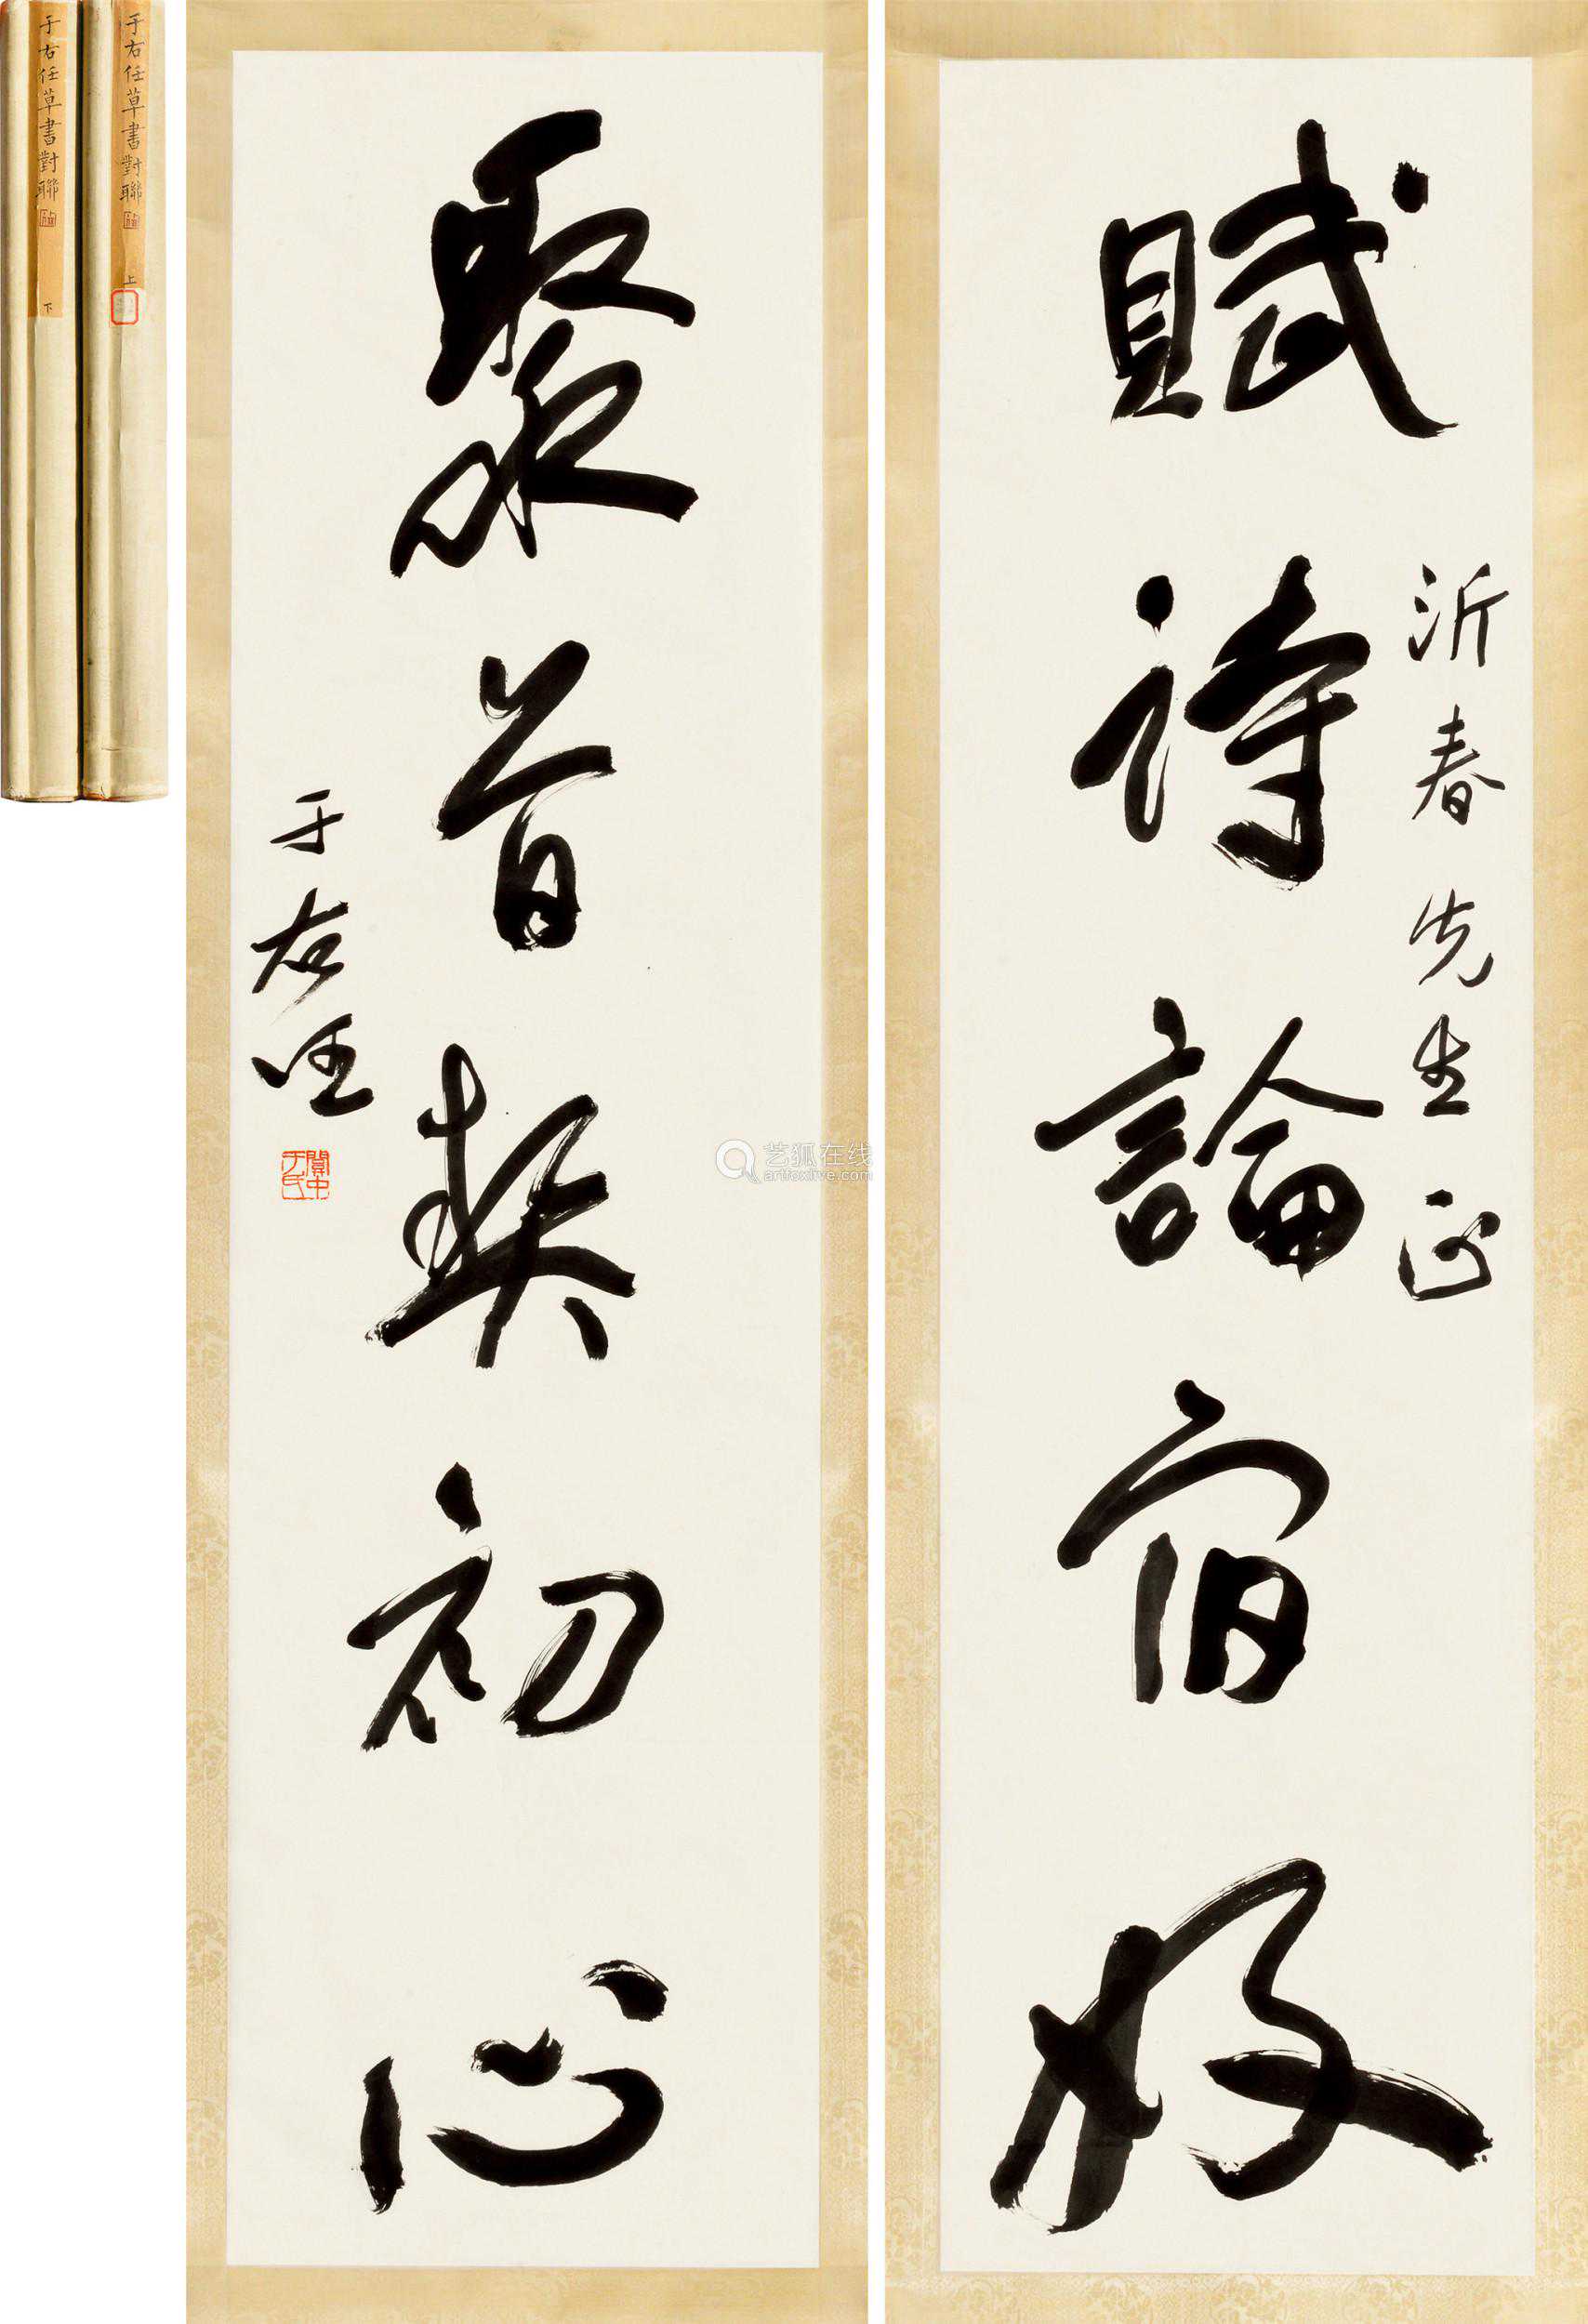 賦詩論宿好
沂春先生正
聚首契初心
于右任
關中于氏
于右任草書對聯 上
于右任草書對聯 下
艺狐在线
artfoxlive.com